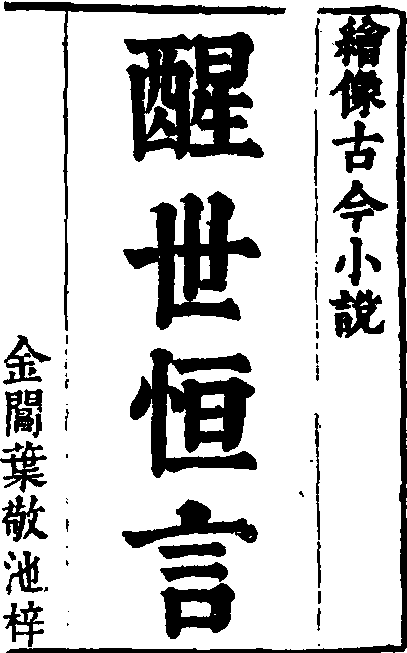 繪像古今小説
醒世恒言
金閶葉敬池梓